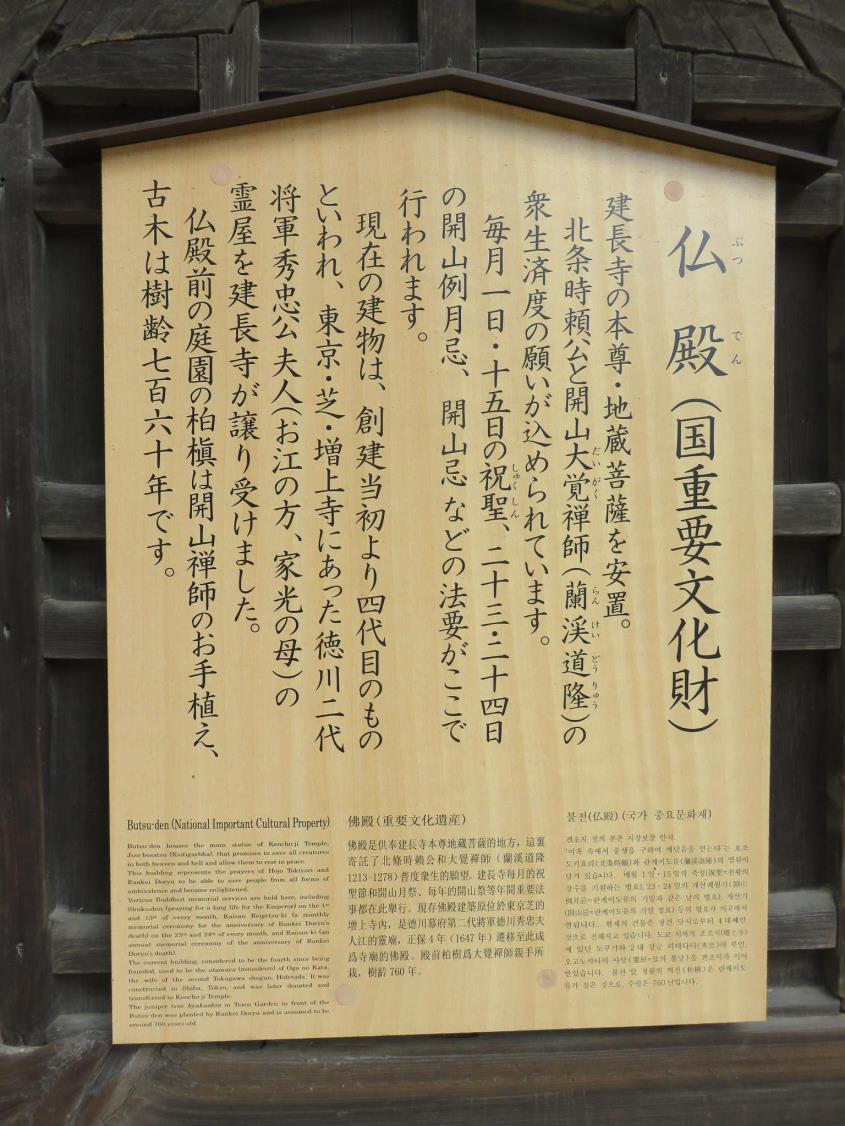 仏殿（国重要文化財）
ぶつ でん
建長寺の本尊・地蔵菩薩を安置。
北条時頼公と開山大覚禅師（蘭渓道隆）の
だいがく らんけいどうりゅう
衆生済度の願いが込められています。
毎月一日・十五日の祝聖、二十三・二十四日
しゅくしん
の開山例月忌、開山忌などの法要がここで
行われます。
現在の建物は、創建当初より四代目のもの
といわれ、東京・芝・増上寺にあった徳川二代
将軍秀忠公夫人（お江の方、家光の母）の
霊屋を建長寺が譲り受けました。
仏殿前の庭園の柏槇は開山禅師のお手植え、
古木は樹齢七百六十年です。
Butsu-den (National Important Cultural Property)
Butsu-den houses the main statue of Kencho-ji Temple,
Jizo-bosatsu (Ksitigarbha), that promises to save all creatures
in both heaven and hell and allow them to rest in peace.
This building represents the prayers of Hojo Tokiyori and
Rankei Doryu to be able to save people from all forms of
ambivalence and become enlightened.
Various Buddhist memorial services are held here, including
Shukushin (praying for a long life for the Emperor) on the 1st
and 15th of every month, Kaisan Reigetsu-ki (a monthly
memorial ceremony for the anniversary of Rankei Doryu's
death) on the 23rd and 24th of every month, and Kaisan-ki (an
annual memorial ceremony of the anniversary of Rankei
Doryu's death).
The current building, considered to be the fourth since being
founded, used to be the otamaya (mausoleum) of Ogo no Kata,
the wife of the second Tokugawa shogun, Hidetada. It was
constructed in Shiba, Tokyo, and was later donated and
transferred to Kencho-ji Temple.
The juniper tree byakushin in Teien Garden in front of the
Butsu-den was planted by Rankei Doryu and is assumed to be
around 760 years old.
佛殿（重要文化遺産）
佛殿是供奉建長寺本尊地藏菩薩的地方，這裏
寄託了北條時賴公和大覺禪師（蘭溪道隆
1213-1278）普度衆生的願望。建長寺每月的祝
聖節和開山月祭、每年的開山祭等年間重要法
事都在此舉行。現存佛殿建築原位於東京芝的
增上寺內，是德川幕府第二代將軍德川秀忠夫
人江的靈廟，正保 4 年（1647 年）遷移至此成
爲寺廟的佛殿。殿前柏樹爲大覺禪師親手所
栽，樹齡 760 年。
불전(仏殿) (국가 중요문화재)
겐초지 절의 본존 지장보살 안치.